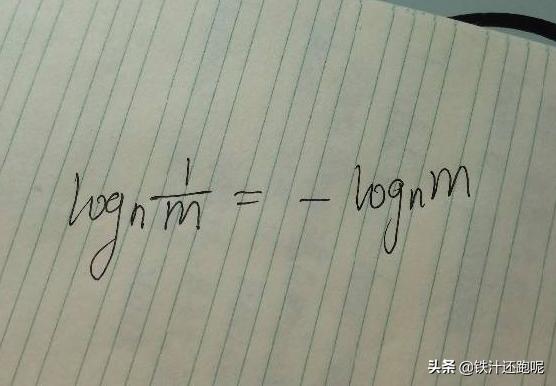 logₙ 1/m = - logₙ m
头条 @铁汁还跑呢